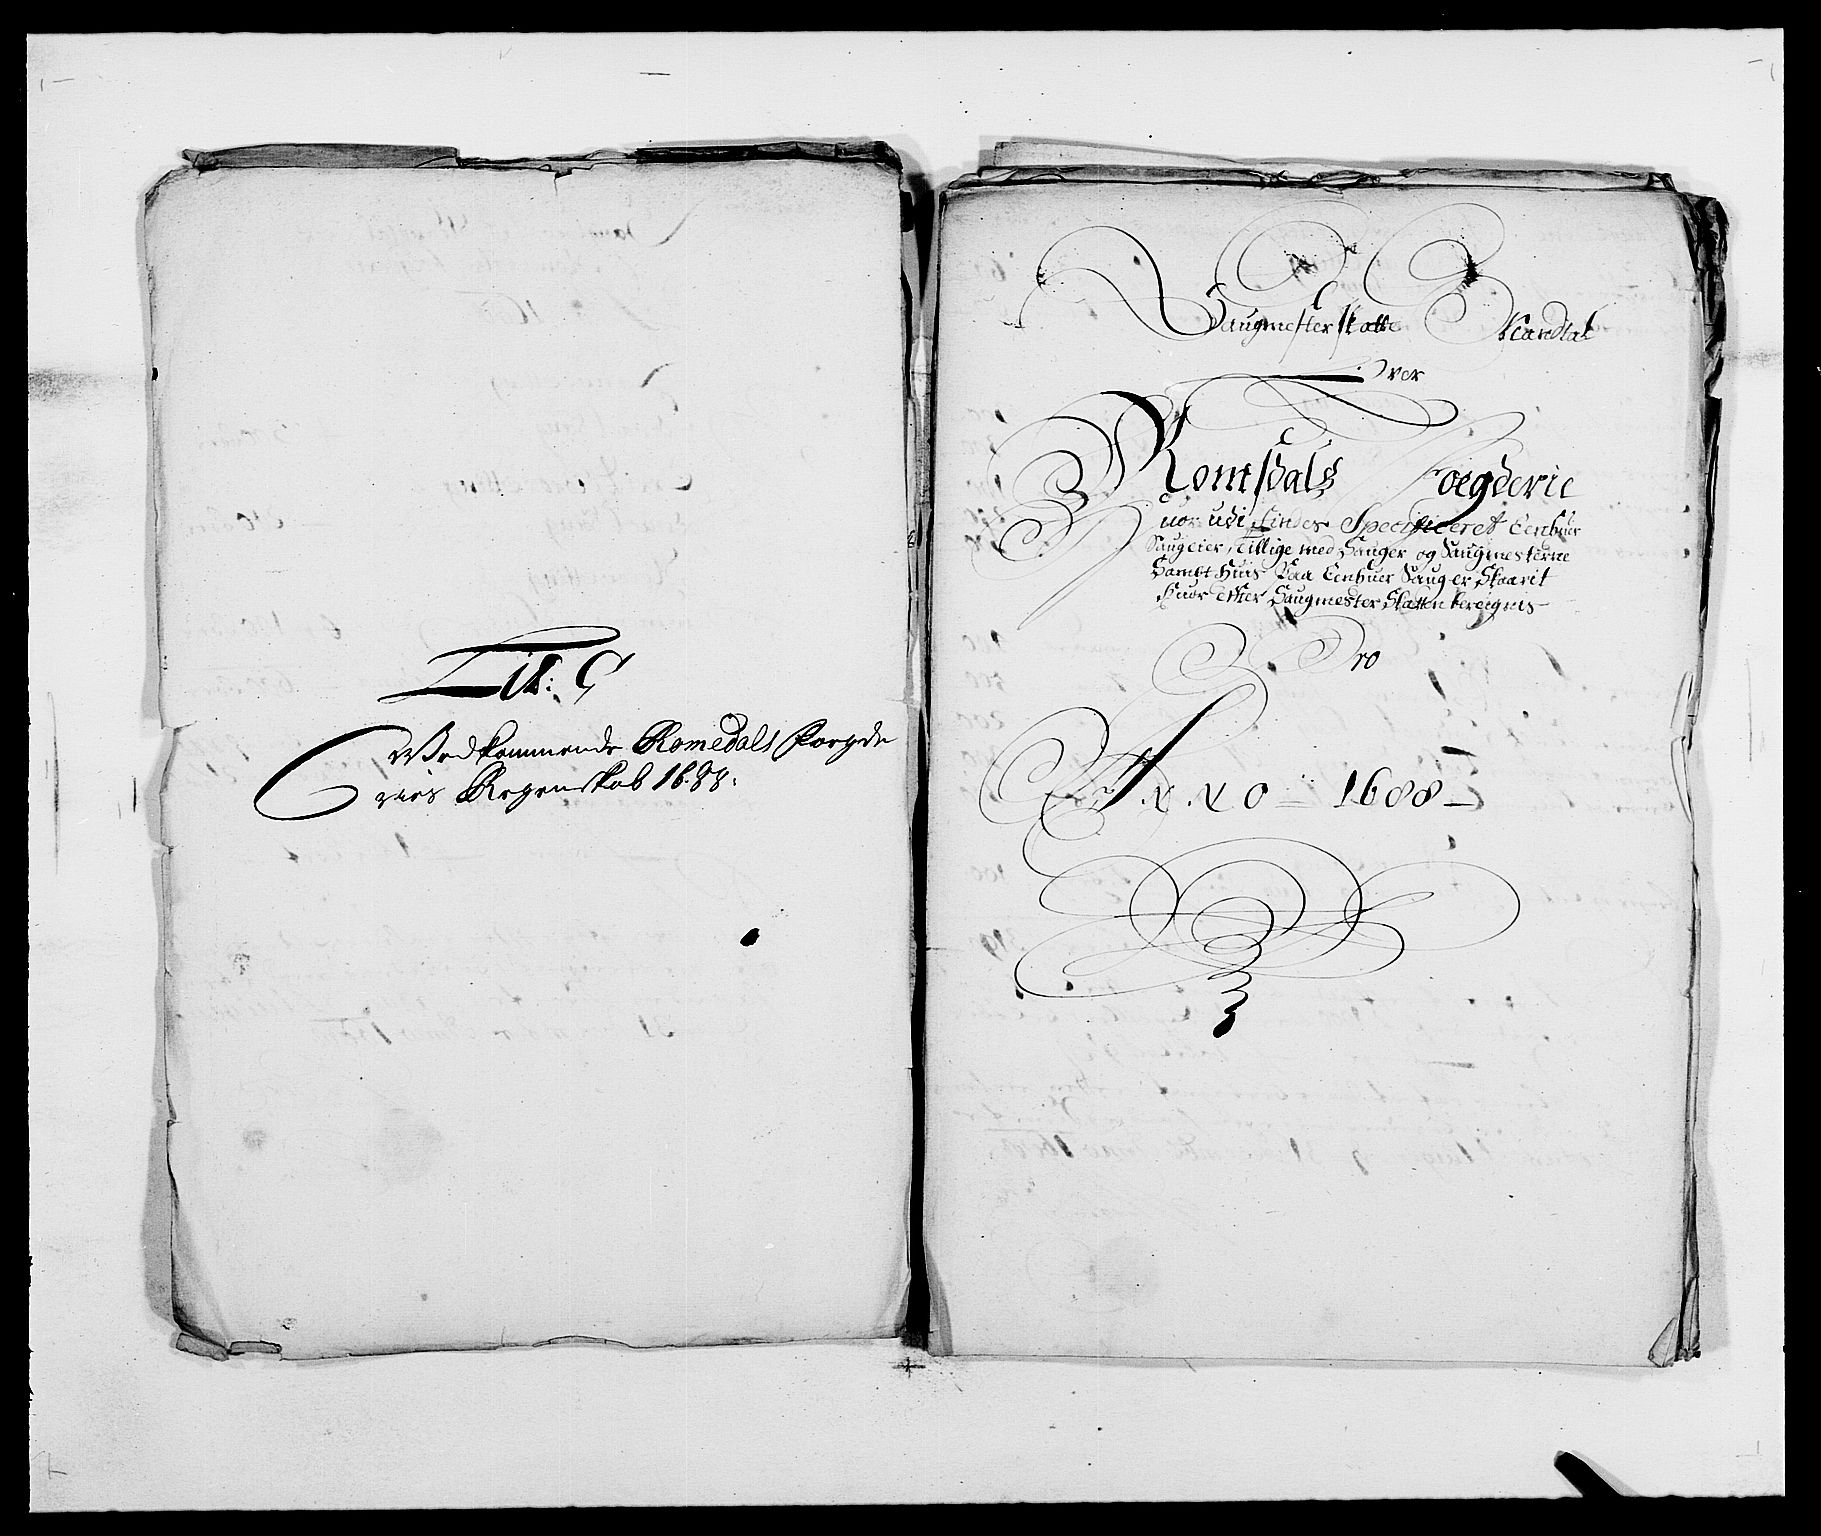 Lit: C
Vedkommende Romsdals Foegde
ries Regenskab 1688:
Saugmesterskatte Mandtal
Over
Romsdals Foigderie
uor udi Findes Specificeret Eenhuer
Saugeier, tillige med Sauger og Saugmesterne
Sambt Huis Paa Eenhuer Saug er Skaarit
Huor efter Saugmester Skatten bereignis
Pro
Anno 1688